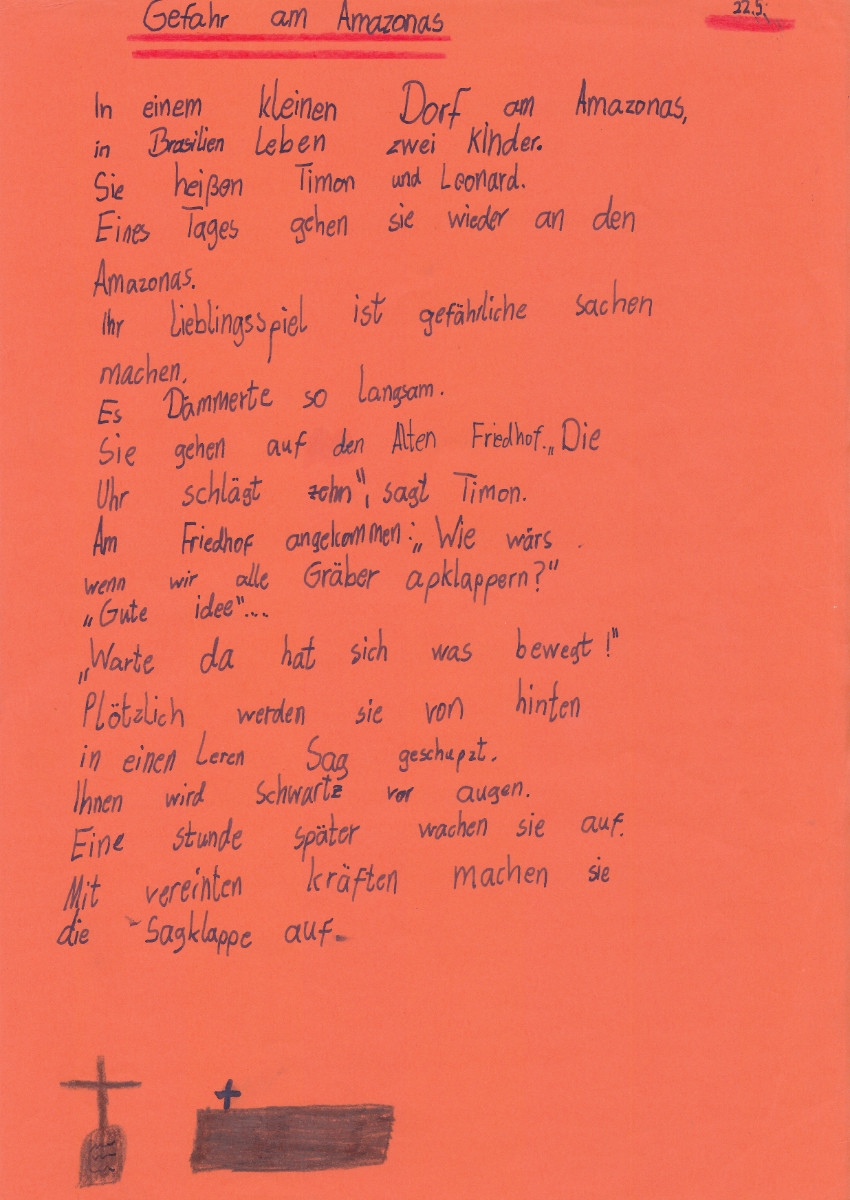 Gefahr am Amazonas
22.5.
In einem kleinen Dorf am Amazonas,
in Brasilien Leben zwei Kinder.
Sie heißen Timon und Leonard.
Eines Tages gehen sie wieder an den
Amazonas.
Ihr Lieblingsspiel ist gefährliche sachen
machen.
Es Dämmerte so Langsam.
Sie gehen auf den Alten Friedhof. „Die
Uhr schlägt zehn", sagt Timon.
Am Friedhof angekommen: „Wie wärs
wenn wir alle Gräber apklappern?"
„Gute idee"...
„Warte da hat sich was bewegt!"
Plötzlich werden sie von hinten
in einen Leren Sag geschupzt.
Ihnen wird schwartz vor augen.
Eine stunde später wachen sie auf.
Mit vereinten kräften machen sie
die Sagklappe auf.